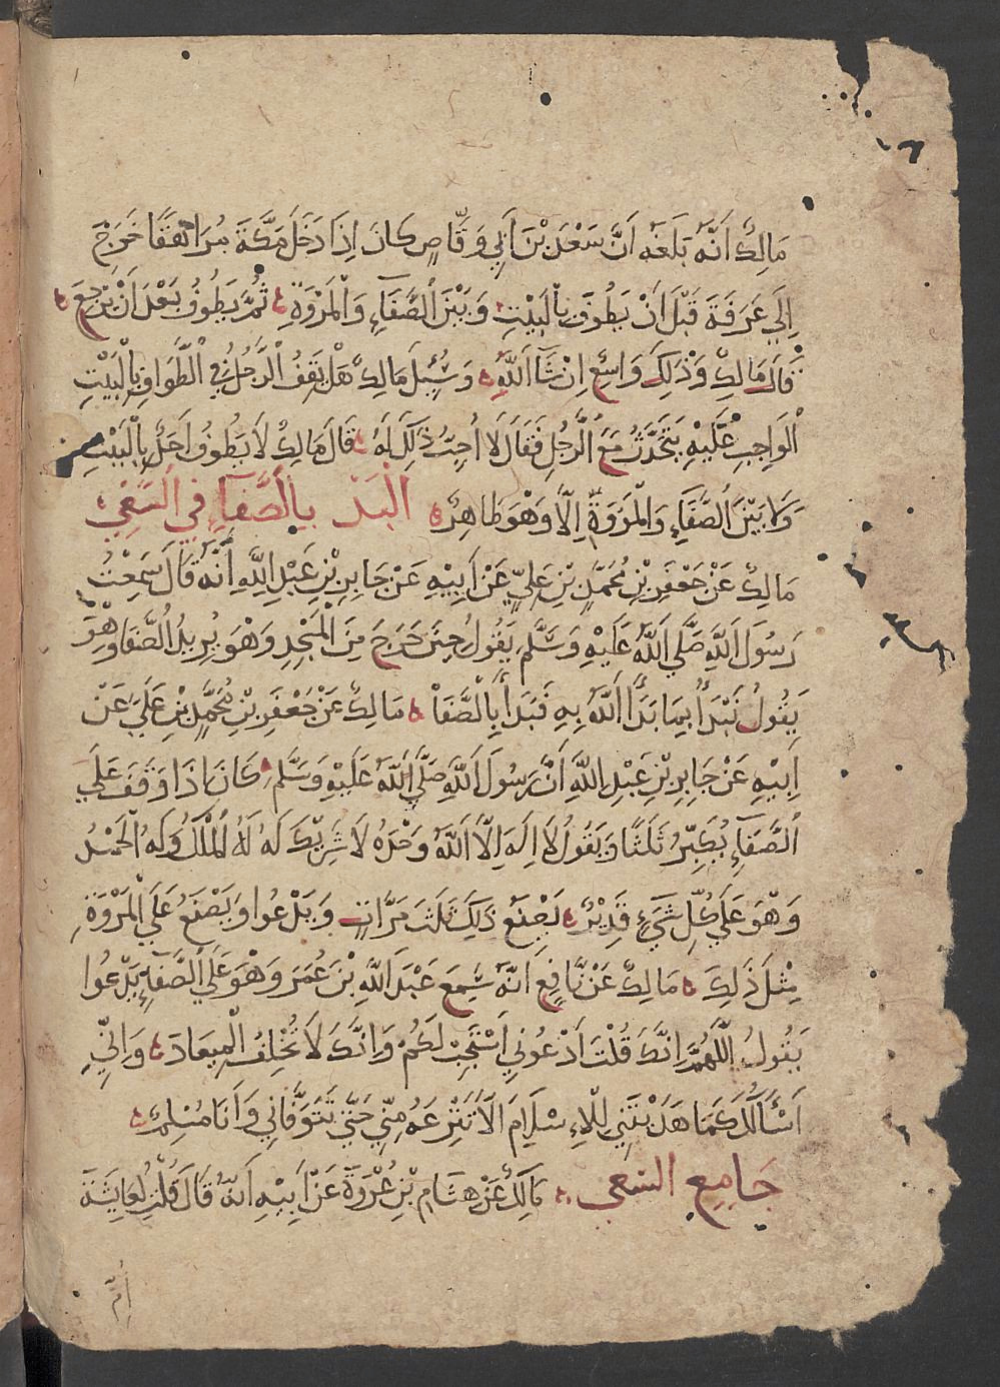 مَالِكٌ أَنَّهُ بَلَغَهُ أَنَّ سَعْدَ بْنَ أَبِي وَقَّاصٍ كَانَ إِذَا دَخَلَ مَكَّةَ مُرَاهِقًا خَرَجَ
إِلَي عَرَفَةَ قَبْلَ أَنْ يَطُوفَ بِالْبَيْتِ وَبَيْنَ الصَّفَآءِ وَالْمَرْوَةِ ثُمَّ يَطُوفُ بَعْدَ أَنْ يَرْجِعَ
قَالَ مَالِكٌ وَذَلِكَ وَاسِعٌ إِنْ شَآءَ اللَّهُ وَسُئِلَ مَالِكٌ هَلْ يَقِفُ الرَّجُلُ فِي الطَّوَافِ بِالْبَيْتِ
الْوَاجِبِ عَلَيْهِ يَتَحَدَّثُ مَعَ الرَّجُلِ فَقَالَ لَا أُحِبُّ ذَلِكَ لَهُ قَالَ مَالِكٌ لَا يَطُوفُ أَحَدٌ بِالْبَيْتِ
وَلَا بَيْنَ الصَّفَآءِ وَالْمَرْوَةِ إِلَّا وَهْوَ طَاهِرٌ الْبَدْ بِالصَّفَآءِ فِي السَّعْيِ
مَالِكٌ عَنْ جَعْفَرِ بْنِ مُحَمَّدِ بْنِ عَلِيٍّ عَنْ أَبِيهِ عَنْ جَابِرِ بْنِ عَبْدِ اللَّهِ أَنَّهُ قَالَ سَمِعْتُ
رَسُولَ اللَّهِ صَلَّي اللَّهُ عَلَيْهِ وَسَلَّمَ يَقُولُ حِينَ خَرَجَ مِنَ الْمَسْجِدِ وَهْوَ يُرِيدُ الصَّفَا وَهْوَ
يَقُولُ نَبْدَأُ بِمَا بَدَأَ اللَّهُ بِهِ فَبَدَأَ بِالصَّفَا مَالِكٌ عَنْ جَعْفَرِ بْنِ مُحَمَّدِ بْنِ عَلِيٍّ عَنْ
أَبِيهِ عَنْ جَابِرِ بْنِ عَبْدِ اللَّهِ أَنَّ رَسُولَ اللَّهِ صَلَّي اللَّهُ عَلَيْهِ وَسَلَّمَ كَانَ إِذَا وَقَفَ عَلَي
الصَّفَآءِ يُكَبِّرُ ثَلَثًا وَيَقُولُ لَا إِلَهَ إِلَّا اللَّهُ وَحْدَهُ لَا شَرِيكَ لَهُ لَهُ الْمُلْكُ وَلَهُ الْحَمْدُ
وَهْوَ عَلَي كُلِّ شَيْءٍ قَدِيرٌ يَصْنَعُ ذَلِكَ ثَلَثَ مَرَّاتٍ وَيَدْعُوا وَيَصْنَعُ عَلَي الْمَرْوَةِ
مِثْلَ ذَلِكَ مَالِكٌ عَنْ نَّافِعٍ أَنَّهُ سَمِعَ عَبْدَ اللَّهِ بْنَ عُمَرَ وَهْوَ عَلَي الصَّفَآءِ يَدْعُوا
يَقُولُ اللَّهُمَّ إِنَّكَ قُلْتَ ادْعُونِي أَسْتَجِبْ لَكُمْ وَإِنَّكَ لَا تُخْلِفُ الْمِيعَادَ وَإِنِّي
أَسْأَلُكَ كَمَا هَدَيْتَنِي لِلْإِسْلَامِ أَلَّا تَنْزِعَهُ مِنِّي حَتَّي تَتَوَفَّانِي وَأَنَا مُسْلِمٌ
جَامِع السَّعْي مَالِكٌ عَنْ هِشَامِ بْنِ عُرْوَةَ عَنْ أَبِيهِ أَنَّهُ قَالَ قُلْتُ لِعَائِشَةَ
أُمِّ